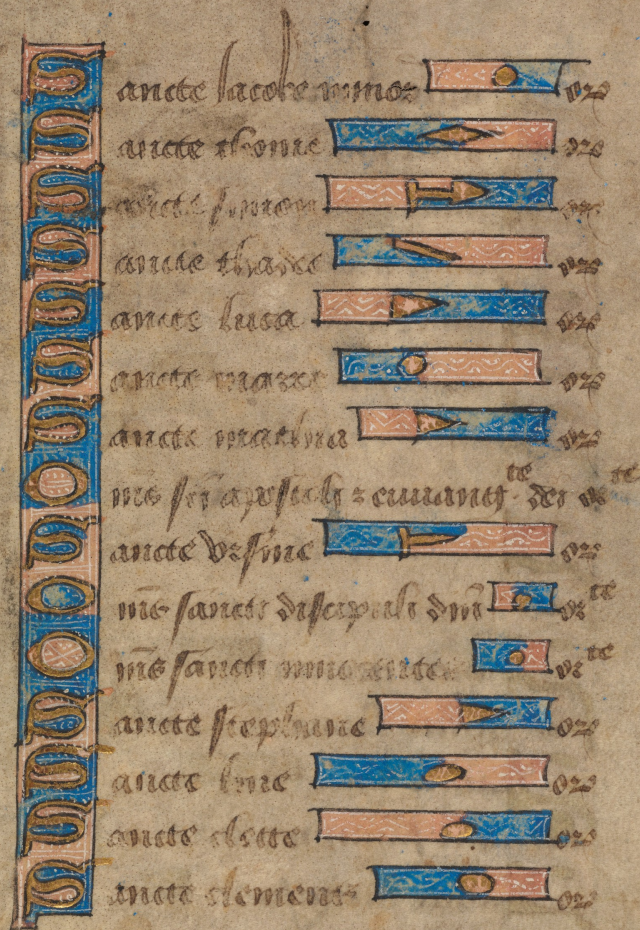 Sancte Iacobe minor or
Sancte thome or
Sancte simon or
Sancte thadee or
Sancte luca or
Sancte marce or
Sancte mathia or
Om̅s sc̅i apostoli z euuangte dei orte
Sancte Vrsine or
Om̅s sancti discipuli dn̅i orte
Om̅s sancti innocentes orte
Sancte stephane or
Sancte line or
Sancte clette or
Sancte clemens or